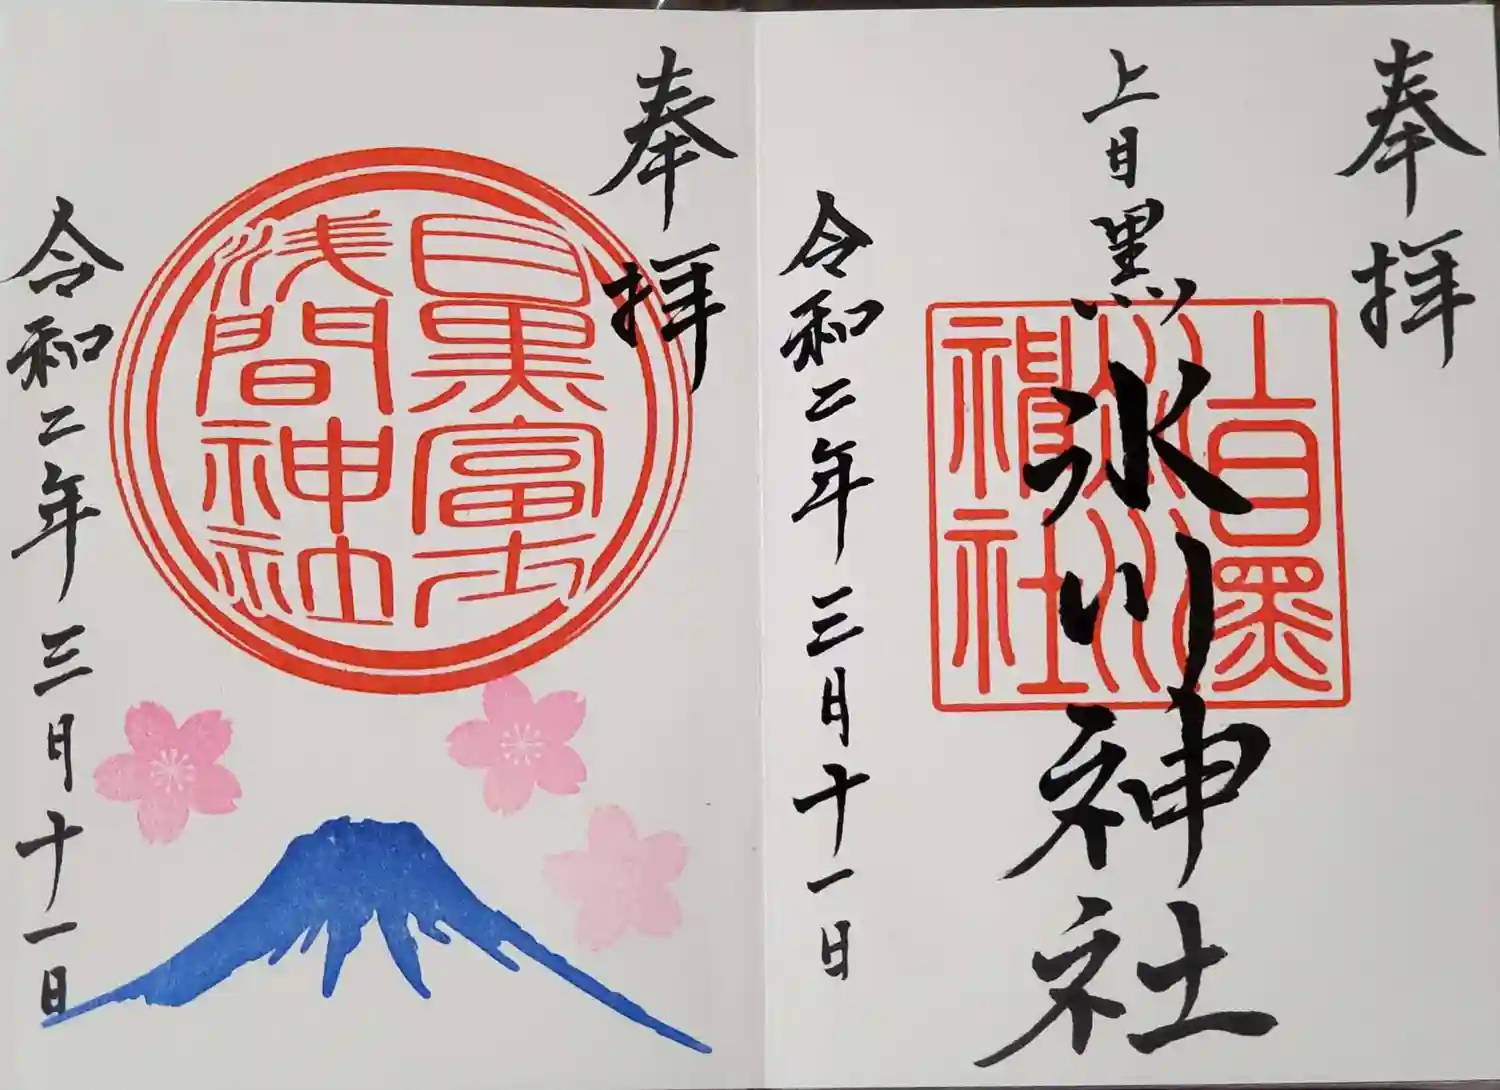 奉拝
上目黒
氷川神社
上目黒
氷川
神社
令和二年三月十一日
奉拝
目黒富士
浅間神社
令和二年三月十一日